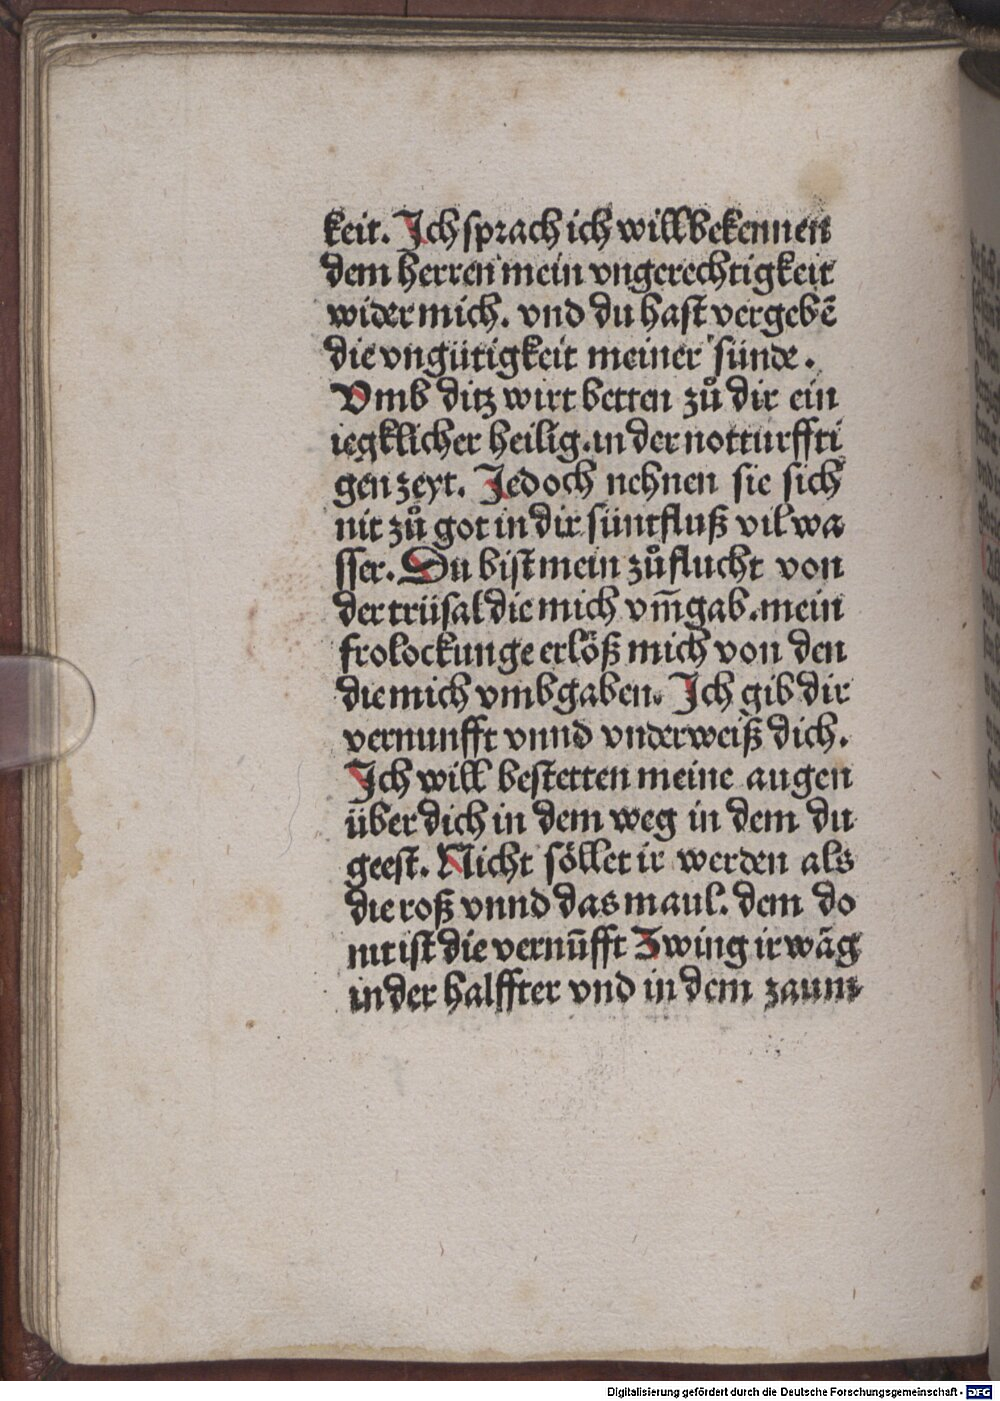 keit. Ich sprach ich will bekennen
dem herren mein vngerechtigkeit
wider mich. vnd du hast vergebē
die vngütigkeit meiner sünde.
Vmb ditz wirt betten zů dir ein
iegklicher heilig. in der notturffti
gen zeyt. Jedoch nehnen sie sich
nit zů got in dir süntfluß vil wa
sser. Du bist mein zůflucht von
der trüsal die mich vm̄gab. mein
frolockung erlöß mich von den
die mich vmbgaben. Ich gib dir
vernunfft vnnd vnderweiß dich.
Ich will bestetten meine augen
über dich in dem weg in dem du
geest. Nicht söllet ir werden als
die roß vnnd das maul. dem do
nit ist die vernūfft Zwing ir wāg
in der halffter vnd in dem zaum
Digitalisierung gefördert durch die Deutsche Forschungsgemeinschaft - DFG